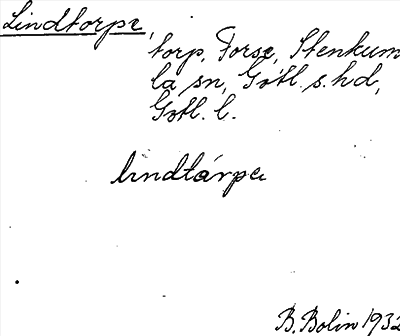 Lindtorpe,
torp, Forse, Stenkum
la sn, Gotl. s. hd,
Gotl. l.
lindtárpe
B. Bolin 1932